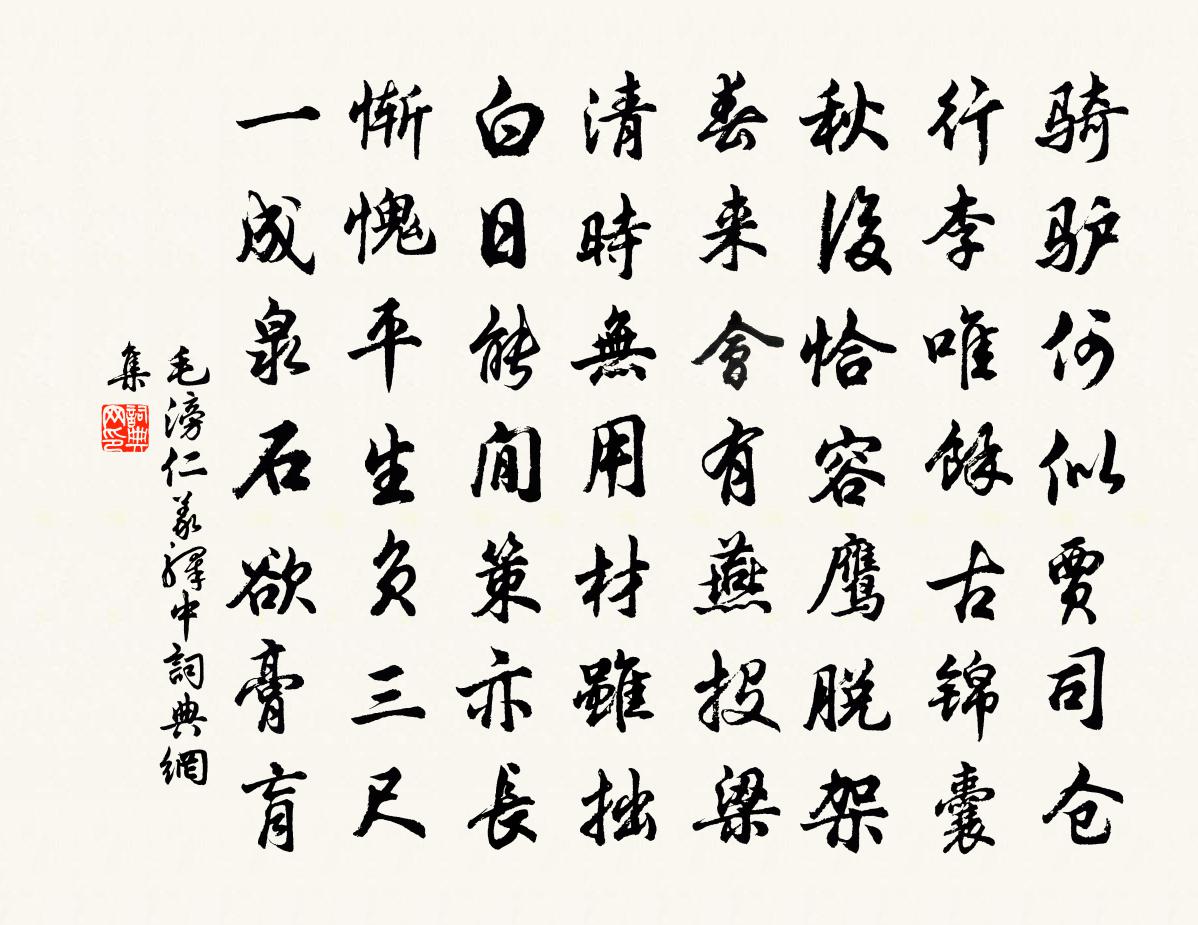 骑驴何似贾司仓
行李唯馀古锦囊
秋後恰容鹰脱架
春来會有燕投梁
清時無用材雖拙
白日能閒策亦長
惭愧平生负三尺
一成泉石欲膏肓
毛滂仁義釋中詞典網
集
詞典
网印